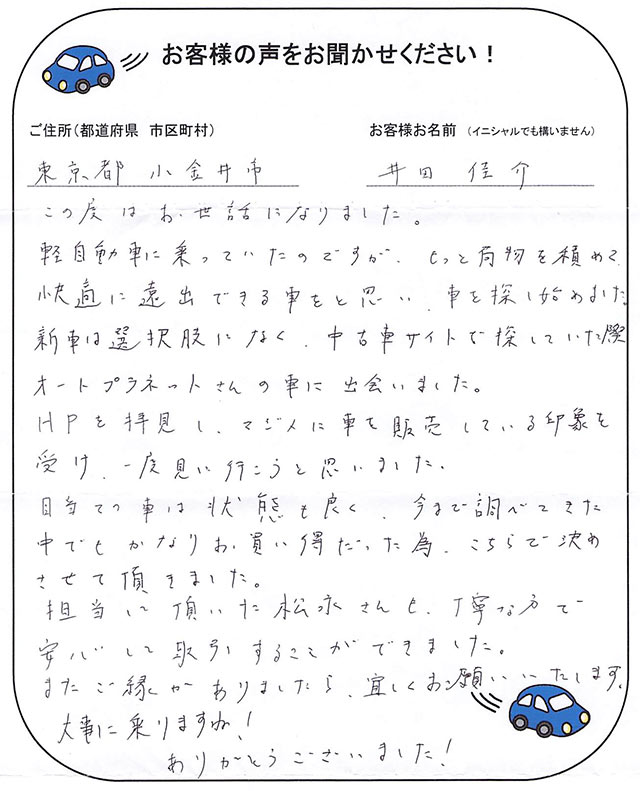 お客様の声をお聞かせください！
ご住所（都道府県 市区町村） お客様お名前 （イニシャルでも構いません）
東京都 小金井市 井田 佳介
この度はお世話になりました。
軽自動車に乗っていたのですが、もっと荷物を積めて
快適に遠出できる車をと思い、車を探し始めました
新車は選択肢になく、中古車サイトで探していた際
オートプラネットさんの車に出会いました。
HPを拝見し、マジメに車を販売している印象を
受け、一度見に行こうと思いました。
目当ての車は状態も良く、今まで調べてきた
中でもかなりお買い得だった為、こちらで決め
させて頂きました。
担当して頂いた松永さんも、丁寧な方で
安心して取引することができました。
またご縁がありましたら、宜しくお願いいたします。
大事に乗りますね！
ありがとうございました！